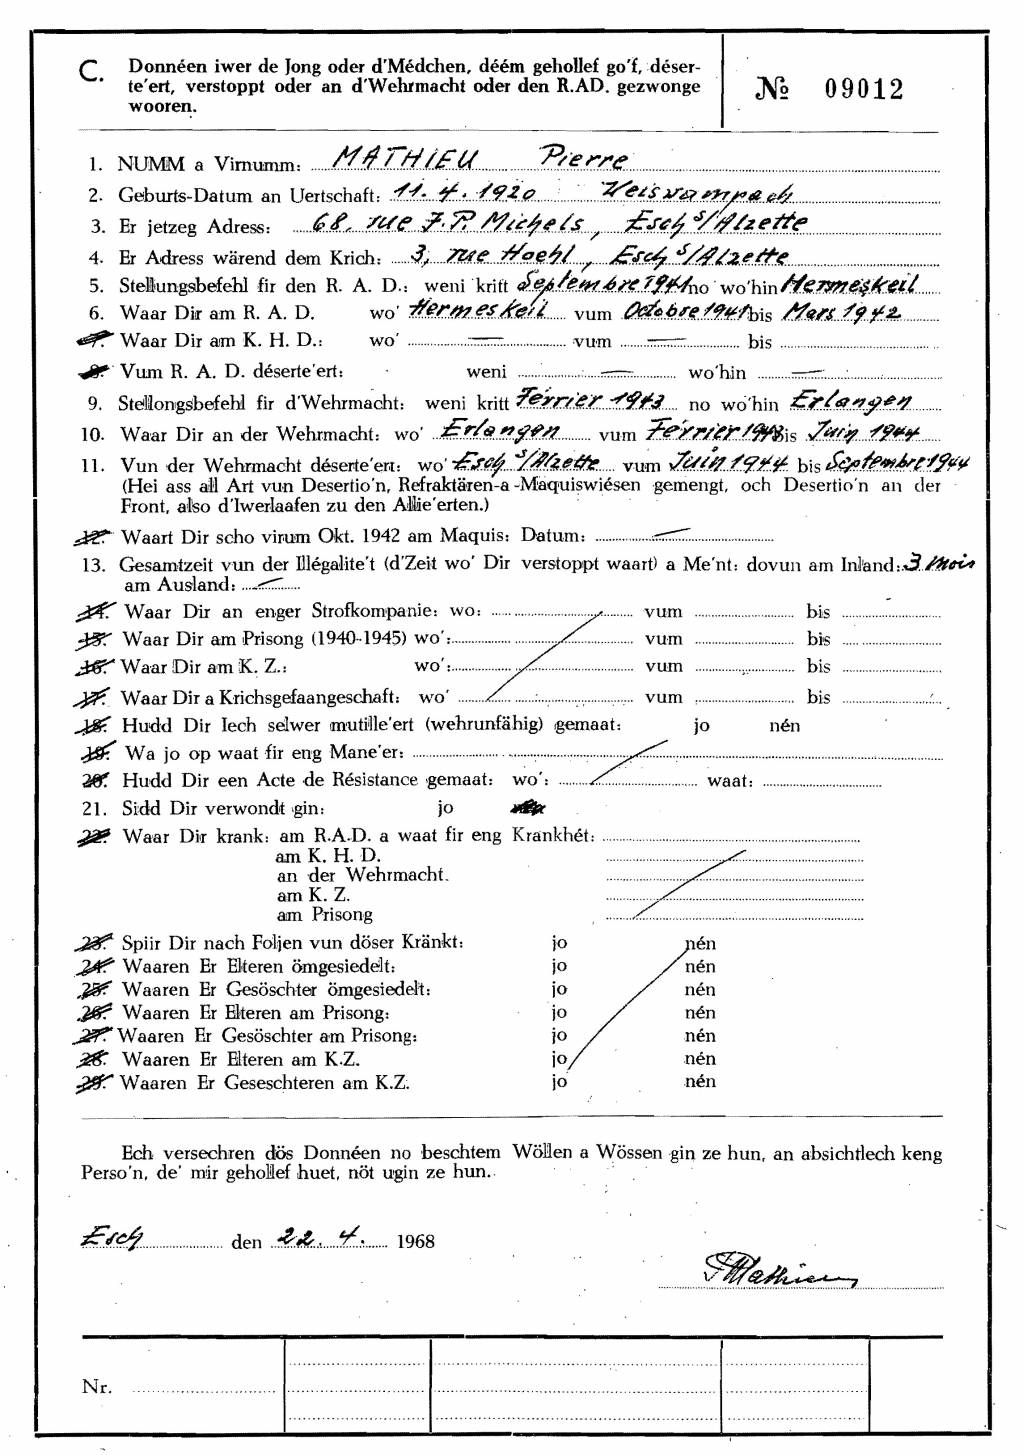 C. Donnéen iwer de Jong oder d'Médchen, déém gehollef go'f, déser-
te'ert, verstoppt oder an d'Wehrmacht oder den R.AD. gezwonge
wooren.
№ 09012
1. NUMM a Virnumm: MATHIEU Pierre
2. Geburts-Datum an Uertschaft: 11. 4. 1920 Weiswampach
3. Er jetzeg Adress: 68, rue J.P. Michels, Esch s/Alzette
4. Er Adress wärend dem Krich: 3, rue Hoehl, Esch s/Alzette
5. Stellungsbefehl fir den R. A. D.: weni kritt Septembre 1941 no wo'hin Hermeskeil
6. Waar Dir am R. A. D. wo' Hermeskeil vum Octobre 1941 bis Mars 1942
7. Waar Dir am K. H. D.: wo' — vum — bis
8. Vum R. A. D. déserte'ert: weni — wo'hin —
9. Stellongsbefehl fir d'Wehrmacht: weni kritt Février 1943 no wo'hin Erlangen
10. Waar Dir an der Wehrmacht: wo' Erlangen vum Février 1943 bis Juin 1944
11. Vun der Wehrmacht déserte'ert: wo' Esch s/Alzette vum Juin 1944 bis Septembre 1944
(Hei ass all Art vun Desertio'n, Refraktären-a Maquiswiésen gemengt, och Desertio'n an der
Front, also d'Iwerlaafen zu den Allie'erten.)
12. Waart Dir scho virum Okt. 1942 am Maquis: Datum: —
13. Gesamtzeit vun der Illégalite't (d'Zeit wo' Dir verstoppt waart) a Me'nt: dovun am Inland: 3 mois
am Ausland: —
14. Waar Dir an enger Strofkompanie: wo: vum bis
15. Waar Dir am Prisong (1940-1945) wo': vum bis
16. Waar Dir am K. Z.: wo': vum bis
17. Waar Dir a Krichsgefaangeschaft: wo' vum bis
18. Hudd Dir Iech selwer mutille'ert (wehrunfähig) gemaat: jo nén
19. Wa jo op waat fir eng Mane'er:
20. Hudd Dir een Acte de Résistance gemaat: wo': waat:
21. Sidd Dir verwondt gin: jo
22. Waar Dir krank: am R.A.D. a waat fir eng Krankhét:
am K. H. D.
an der Wehrmacht.
am K. Z.
am Prisong
23. Spiir Dir nach Foljen vun döser Kränkt: jo nén
24. Waaren Er Elteren ömgesiedelt: jo nén
25. Waaren Er Gesöschter ömgesiedelt: jo nén
26. Waaren Er Elteren am Prisong: jo nén
27. Waaren Er Gesöschter am Prisong: jo nén
28. Waaren Er Elteren am K.Z. jo nén
29. Waaren Er Geseschteren am K.Z. jo nén
Ech versechren dös Donnéen no beschtem Wöllen a Wössen gin ze hun, an absichtlech keng
Perso'n, de' mir gehollef huet, nöt ugin ze hun.
Esch den 22. 4. 1968
PMathieu
Nr.